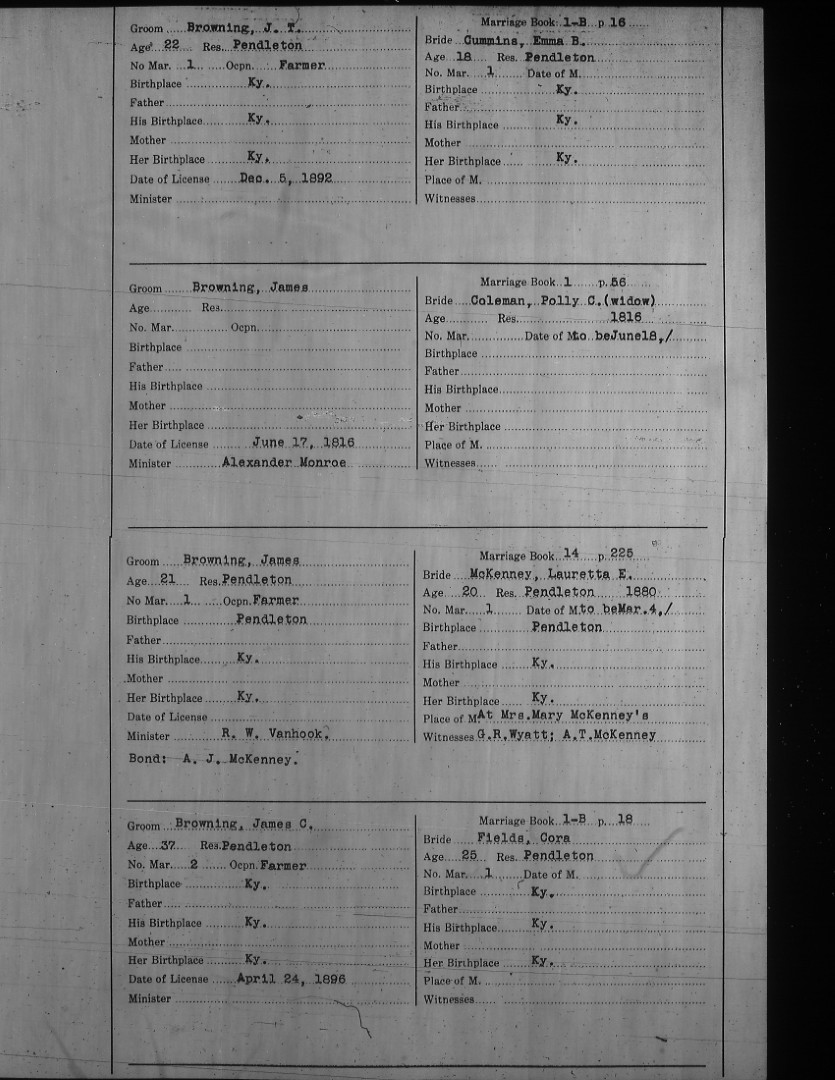 Groom Browning, J. T.
Age 22 Res. Pendleton
No Mar. 1 Ocpn. Farmer
Birthplace Ky.
Father
His Birthplace Ky.
Mother
Her Birthplace Ky.
Date of License Dec. 5, 1892
Minister
Marriage Book 1-B p. 16
Bride Cummins, Emma B.
Age 18 Res. Pendleton
No. Mar. 1 Date of M.
Birthplace Ky.
Father
His Birthplace Ky.
Mother
Her Birthplace Ky.
Place of M.
Witnesses
Groom Browning, James
Age Res.
No. Mar. Ocpn.
Birthplace
Father
His Birthplace
Mother
Her Birthplace
Date of License June 17, 1816
Minister Alexander Monroe
Marriage Book 1 p. 56
Bride Coleman, Polly C.(widow)
Age Res. 1816
No. Mar. Date of M. to beJune18,/
Birthplace
Father
His Birthplace
Mother
Her Birthplace
Place of M.
Witnesses
Groom Browning, James
Age 21 Res. Pendleton
No Mar. 1 Ocpn. Farmer
Birthplace Pendleton
Father
His Birthplace Ky.
Mother
Her Birthplace Ky.
Date of License
Minister R. W. Vanhook.
Bond: A. J. McKenney.
Marriage Book 14 p. 225
Bride McKenney, Lauretta E.
Age 20 Res. Pendleton 1880
No. Mar. 1 Date of M. to beMar.4,/
Birthplace Pendleton
Father
His Birthplace Ky.
Mother
Her Birthplace Ky.
Place of M. At Mrs.Mary McKenney's
Witnesses G.R.Wyatt; A.T.McKenney
Groom Browning, James C.
Age 37 Res. Pendleton
No. Mar. 2 Ocpn. Farmer
Birthplace Ky.
Father
His Birthplace Ky.
Mother
Her Birthplace Ky.
Date of License April 24, 1896
Minister
Marriage Book 1-B p. 18
Bride Fields, Cora
Age 25 Res. Pendleton
No. Mar. 1 Date of M.
Birthplace Ky.
Father
His Birthplace Ky.
Mother
Her Birthplace Ky.
Place of M.
Witnesses